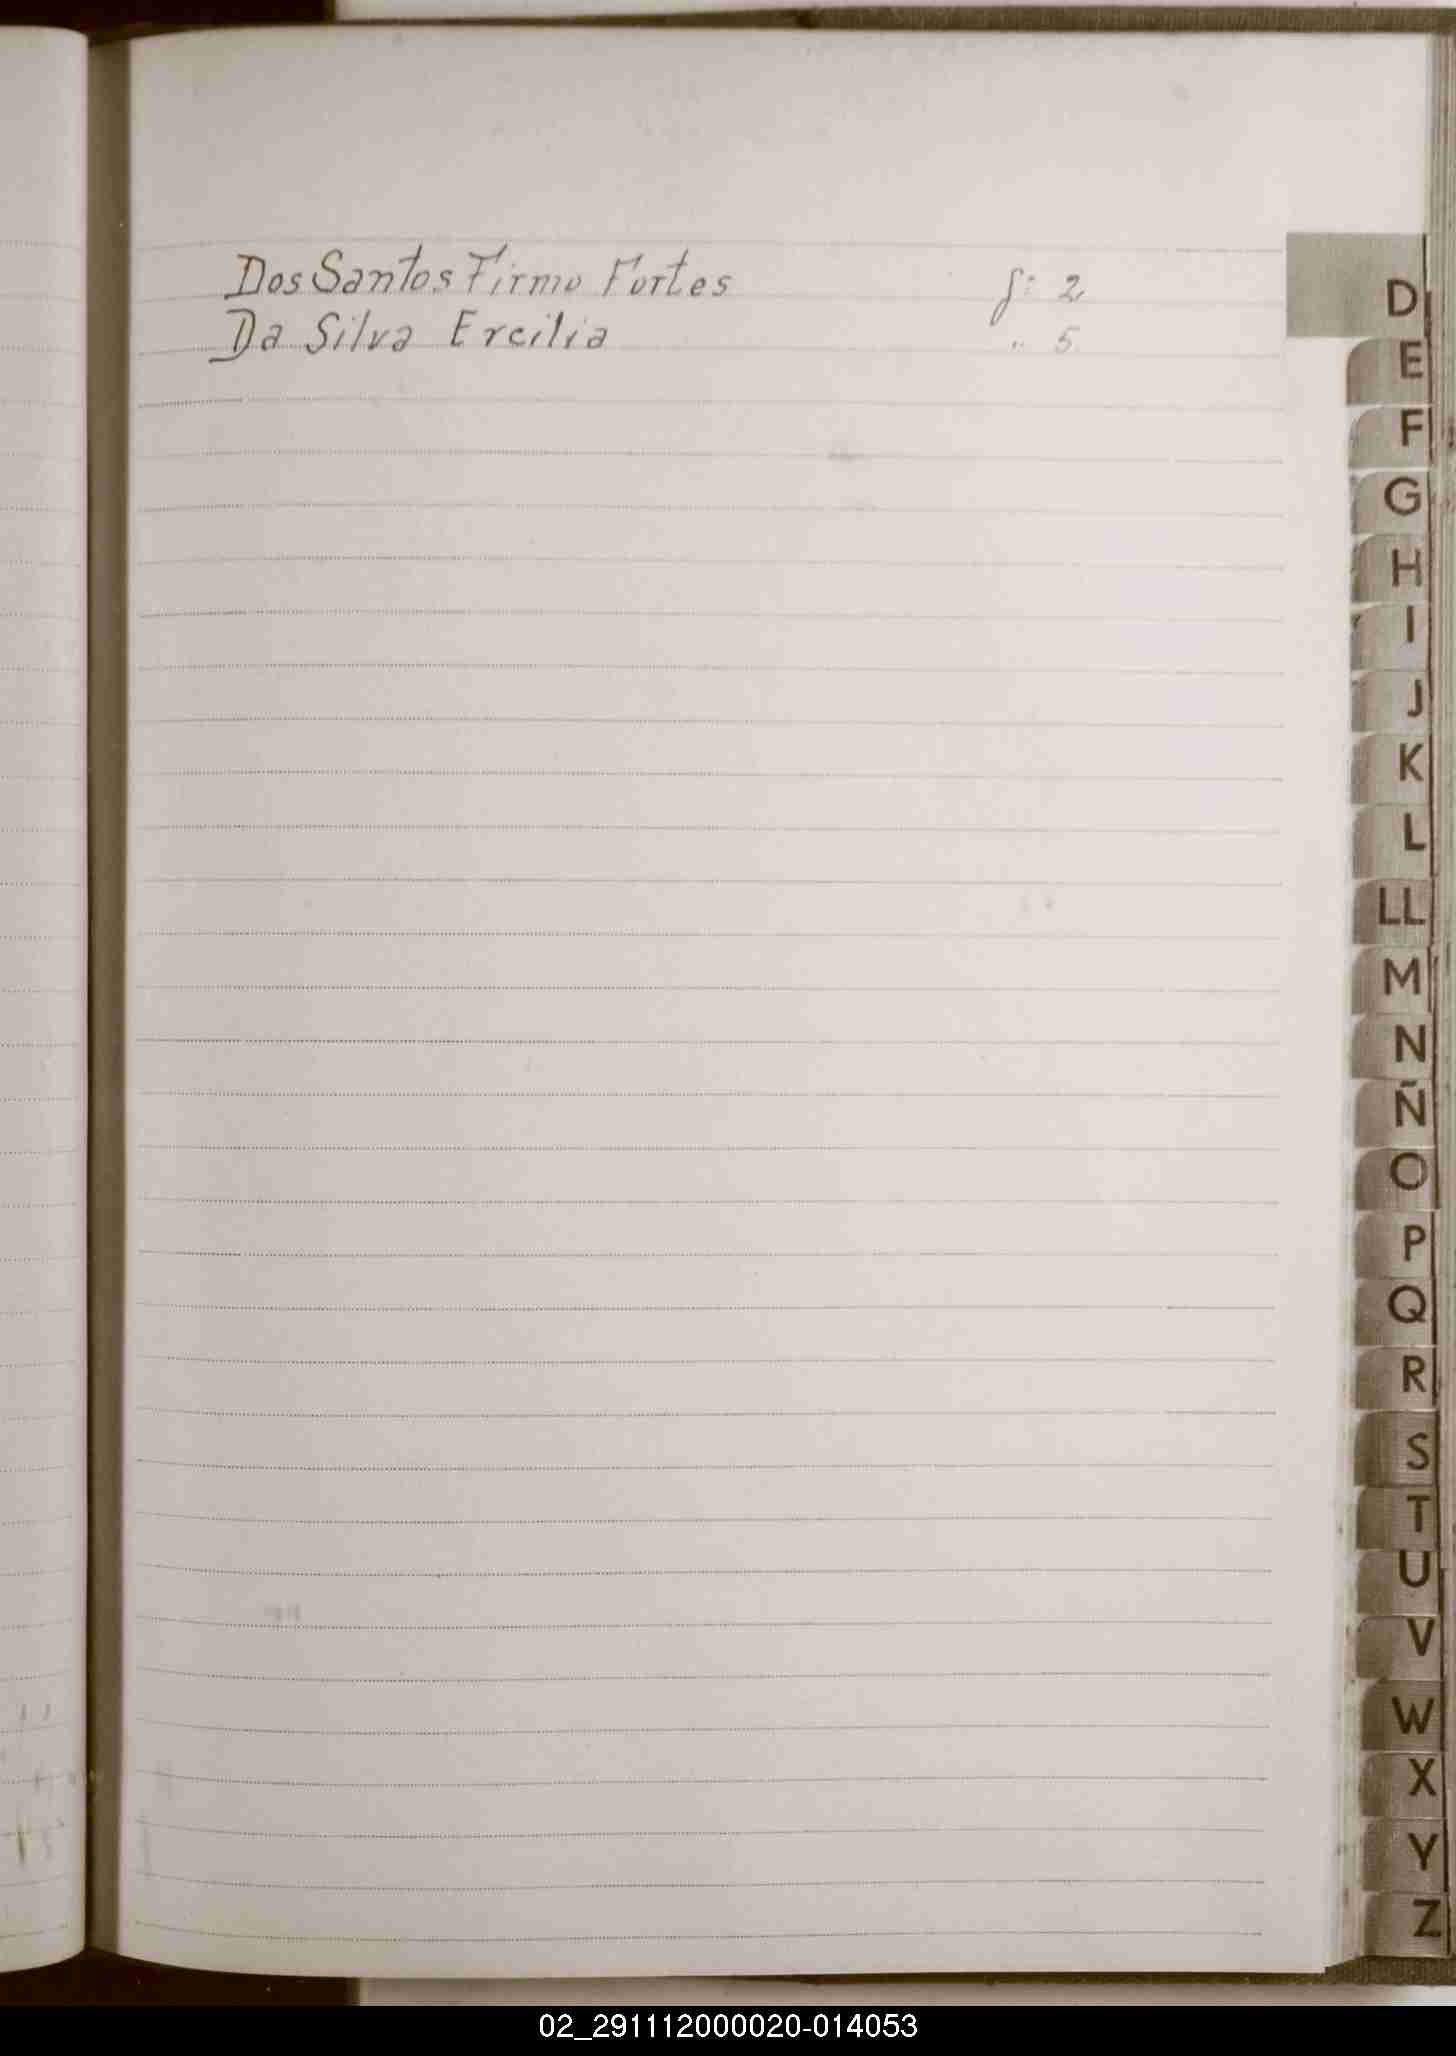 Dos Santos Firmo Fortes f: 2
Da Silva Ercilia " 5
D
E
F
G
H
I
J
K
L
LL
M
N
Ñ
O
P
Q
R
S
T
U
V
W
X
Y
Z
02_291112000020-014053